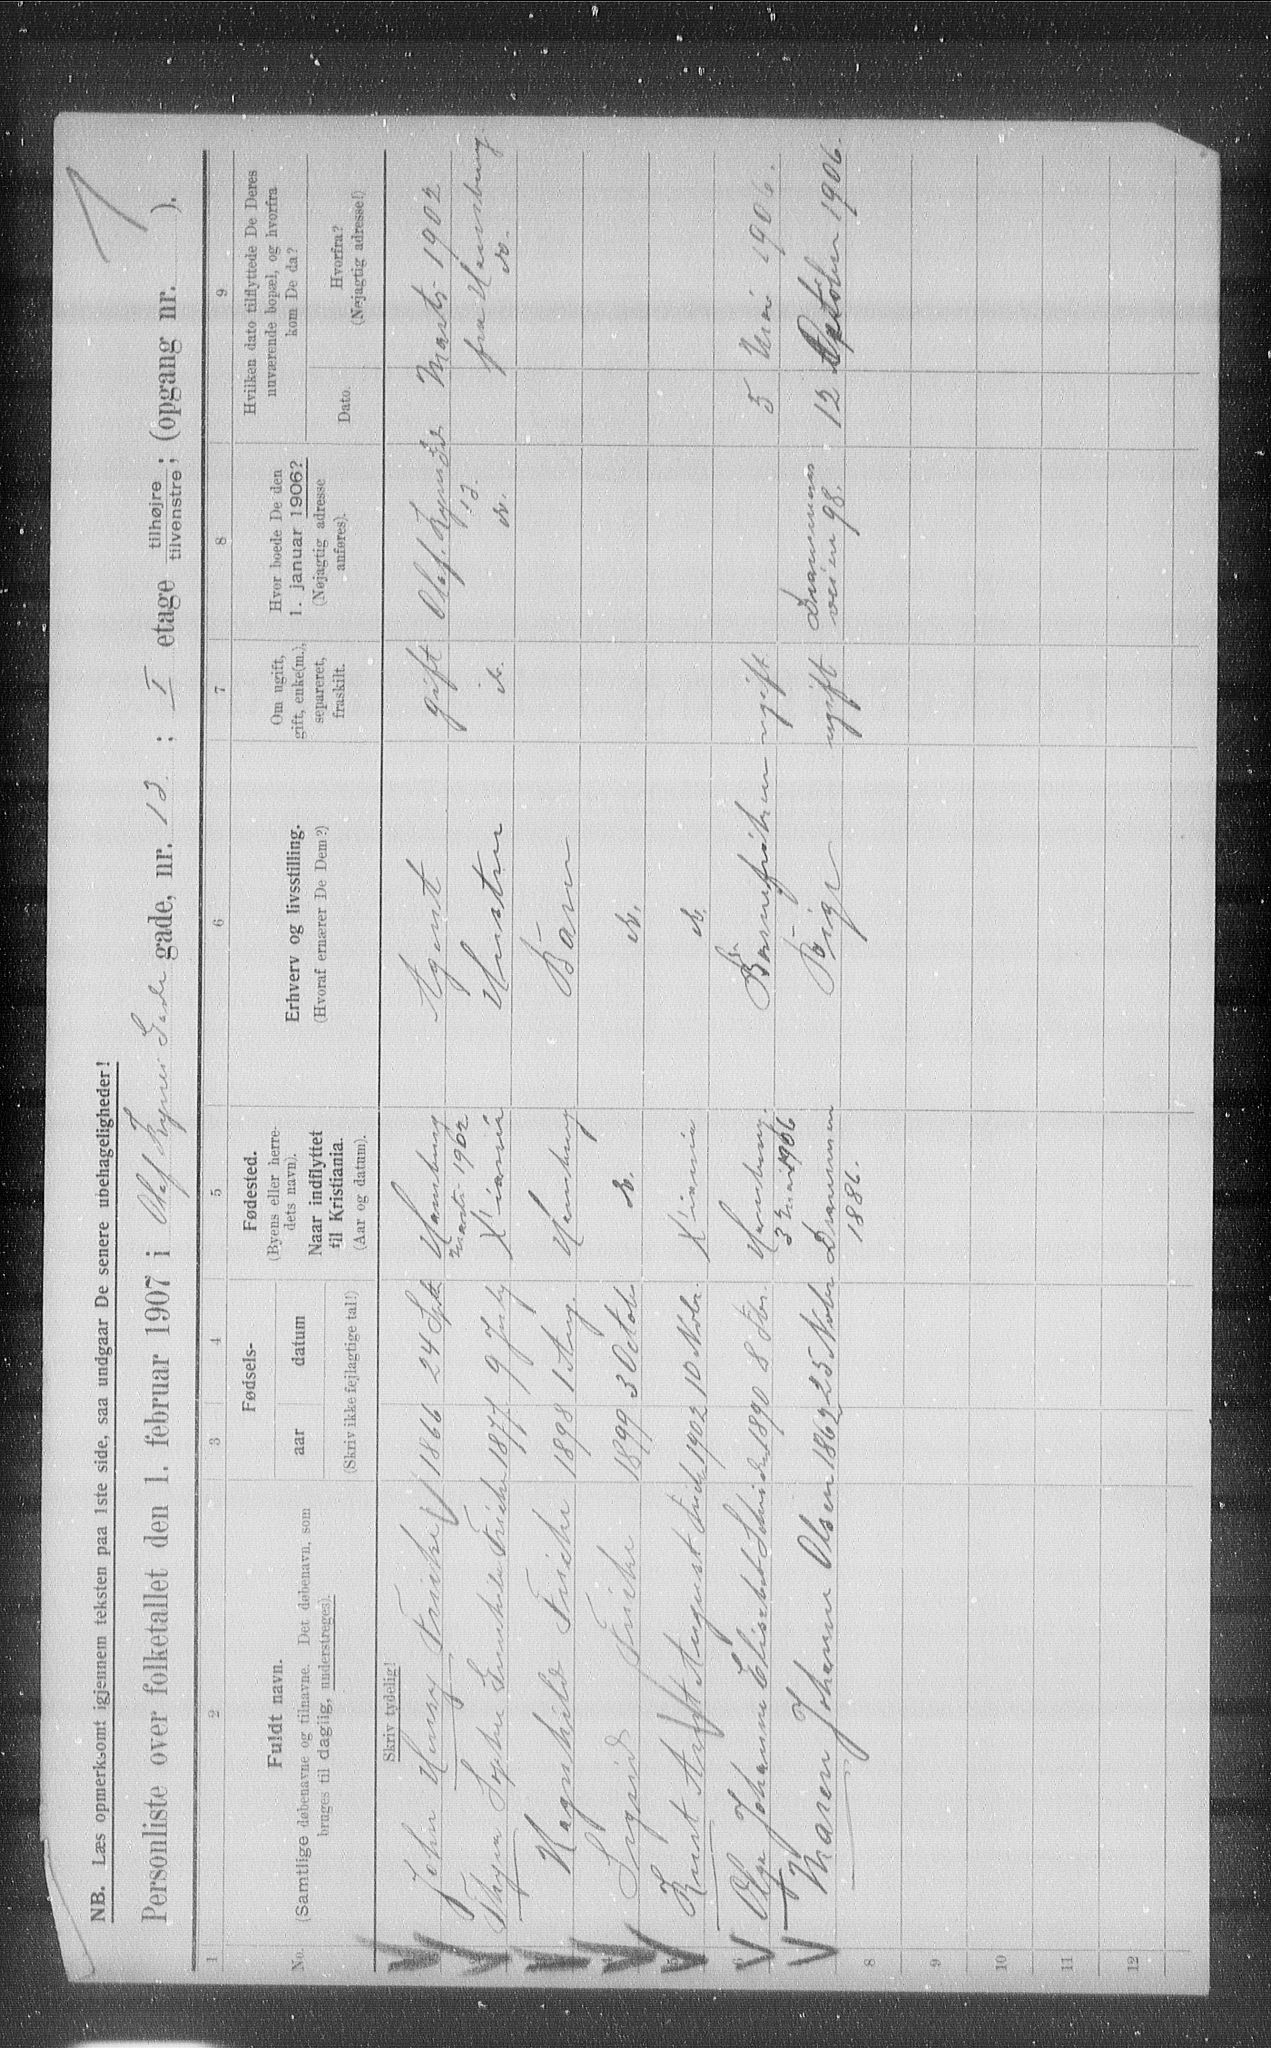 NB. Læs opmerksomt igjennem teksten paa 1ste side, saa undgaar De senere ubehageligheder!
Personliste over folketallet den 1. februar 1907 i Olaf Kyrres Gade gade, nr. 12 ; I etage tilhøjre tilvenstre ; (opgang nr. ).
1 2 3 4 5 6 7 8 9
No.
Fuldt navn.
(Samtlige døbenavne og tilnavne. Det døbenavn, som
bruges til daglig, understreges).
Fødsels-
aar datum
(Skriv ikke fejlagtige tal!)
Fødested.
(Byens eller herre-
dets navn).
Naar indflyttet
til Kristiania.
(Aar og datum).
Erhverv og livsstilling.
(Hvoraf ernærer De Dem?)
Om ugift,
gift, enke(m.),
separeret,
fraskilt.
Hvor boede De den
1. januar 1906?
(Nøjagtig adresse
anføres).
Hvilken dato tilflyttede De Deres
nuværende bopæl, og hvorfra
kom De da?
Dato.
Hvorfra?
(Nøjagtig adresse!)
Skriv tydelig!
John Henry Fricke 1866 24 Sept Hamburg Agent gift Olaf Kyrres Gd Marts 1902
Marts 1902 12. fra Hamburg
Sophie Fricke 1877 9 July K'iania Hustru do. do. do.
Magnhild Fricke 1898 1 Aug. Hamburg Barn
Sigrid Fricke 1899 3 Octob do. do.
Knut August Fricke 1902 10 Nobr. K'iania do.
Olga Johanne Elisabet 1890 8 Hamburg. Barnefrøken ugift 5 1906.
3 1906
Maren Johanne Olsen 1862 25 Nobr Drammen Pige ugift Drammens 12 October 1906.
1886. veien 98.
8
9
10
11
12